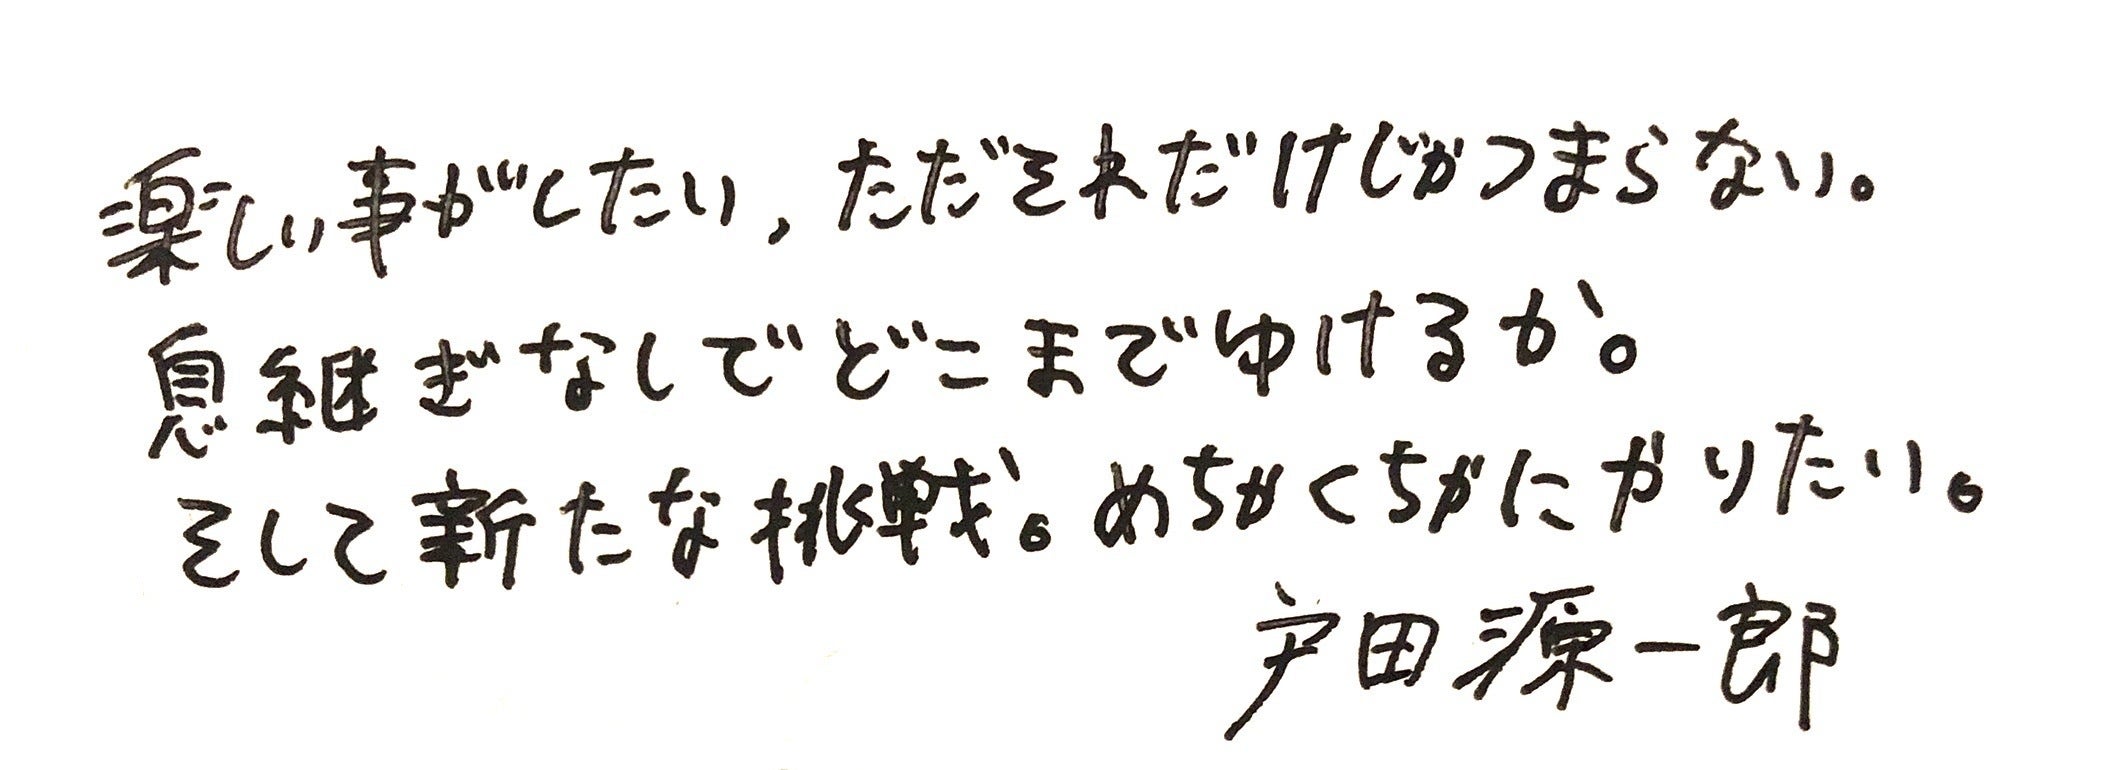 楽しい事がしたい,ただそれだけじゃつまらない。
息継ぎなしでどこまでゆけるか。
そして新たな挑戦。めちゃくちゃにやりたい。
戸田源一郎